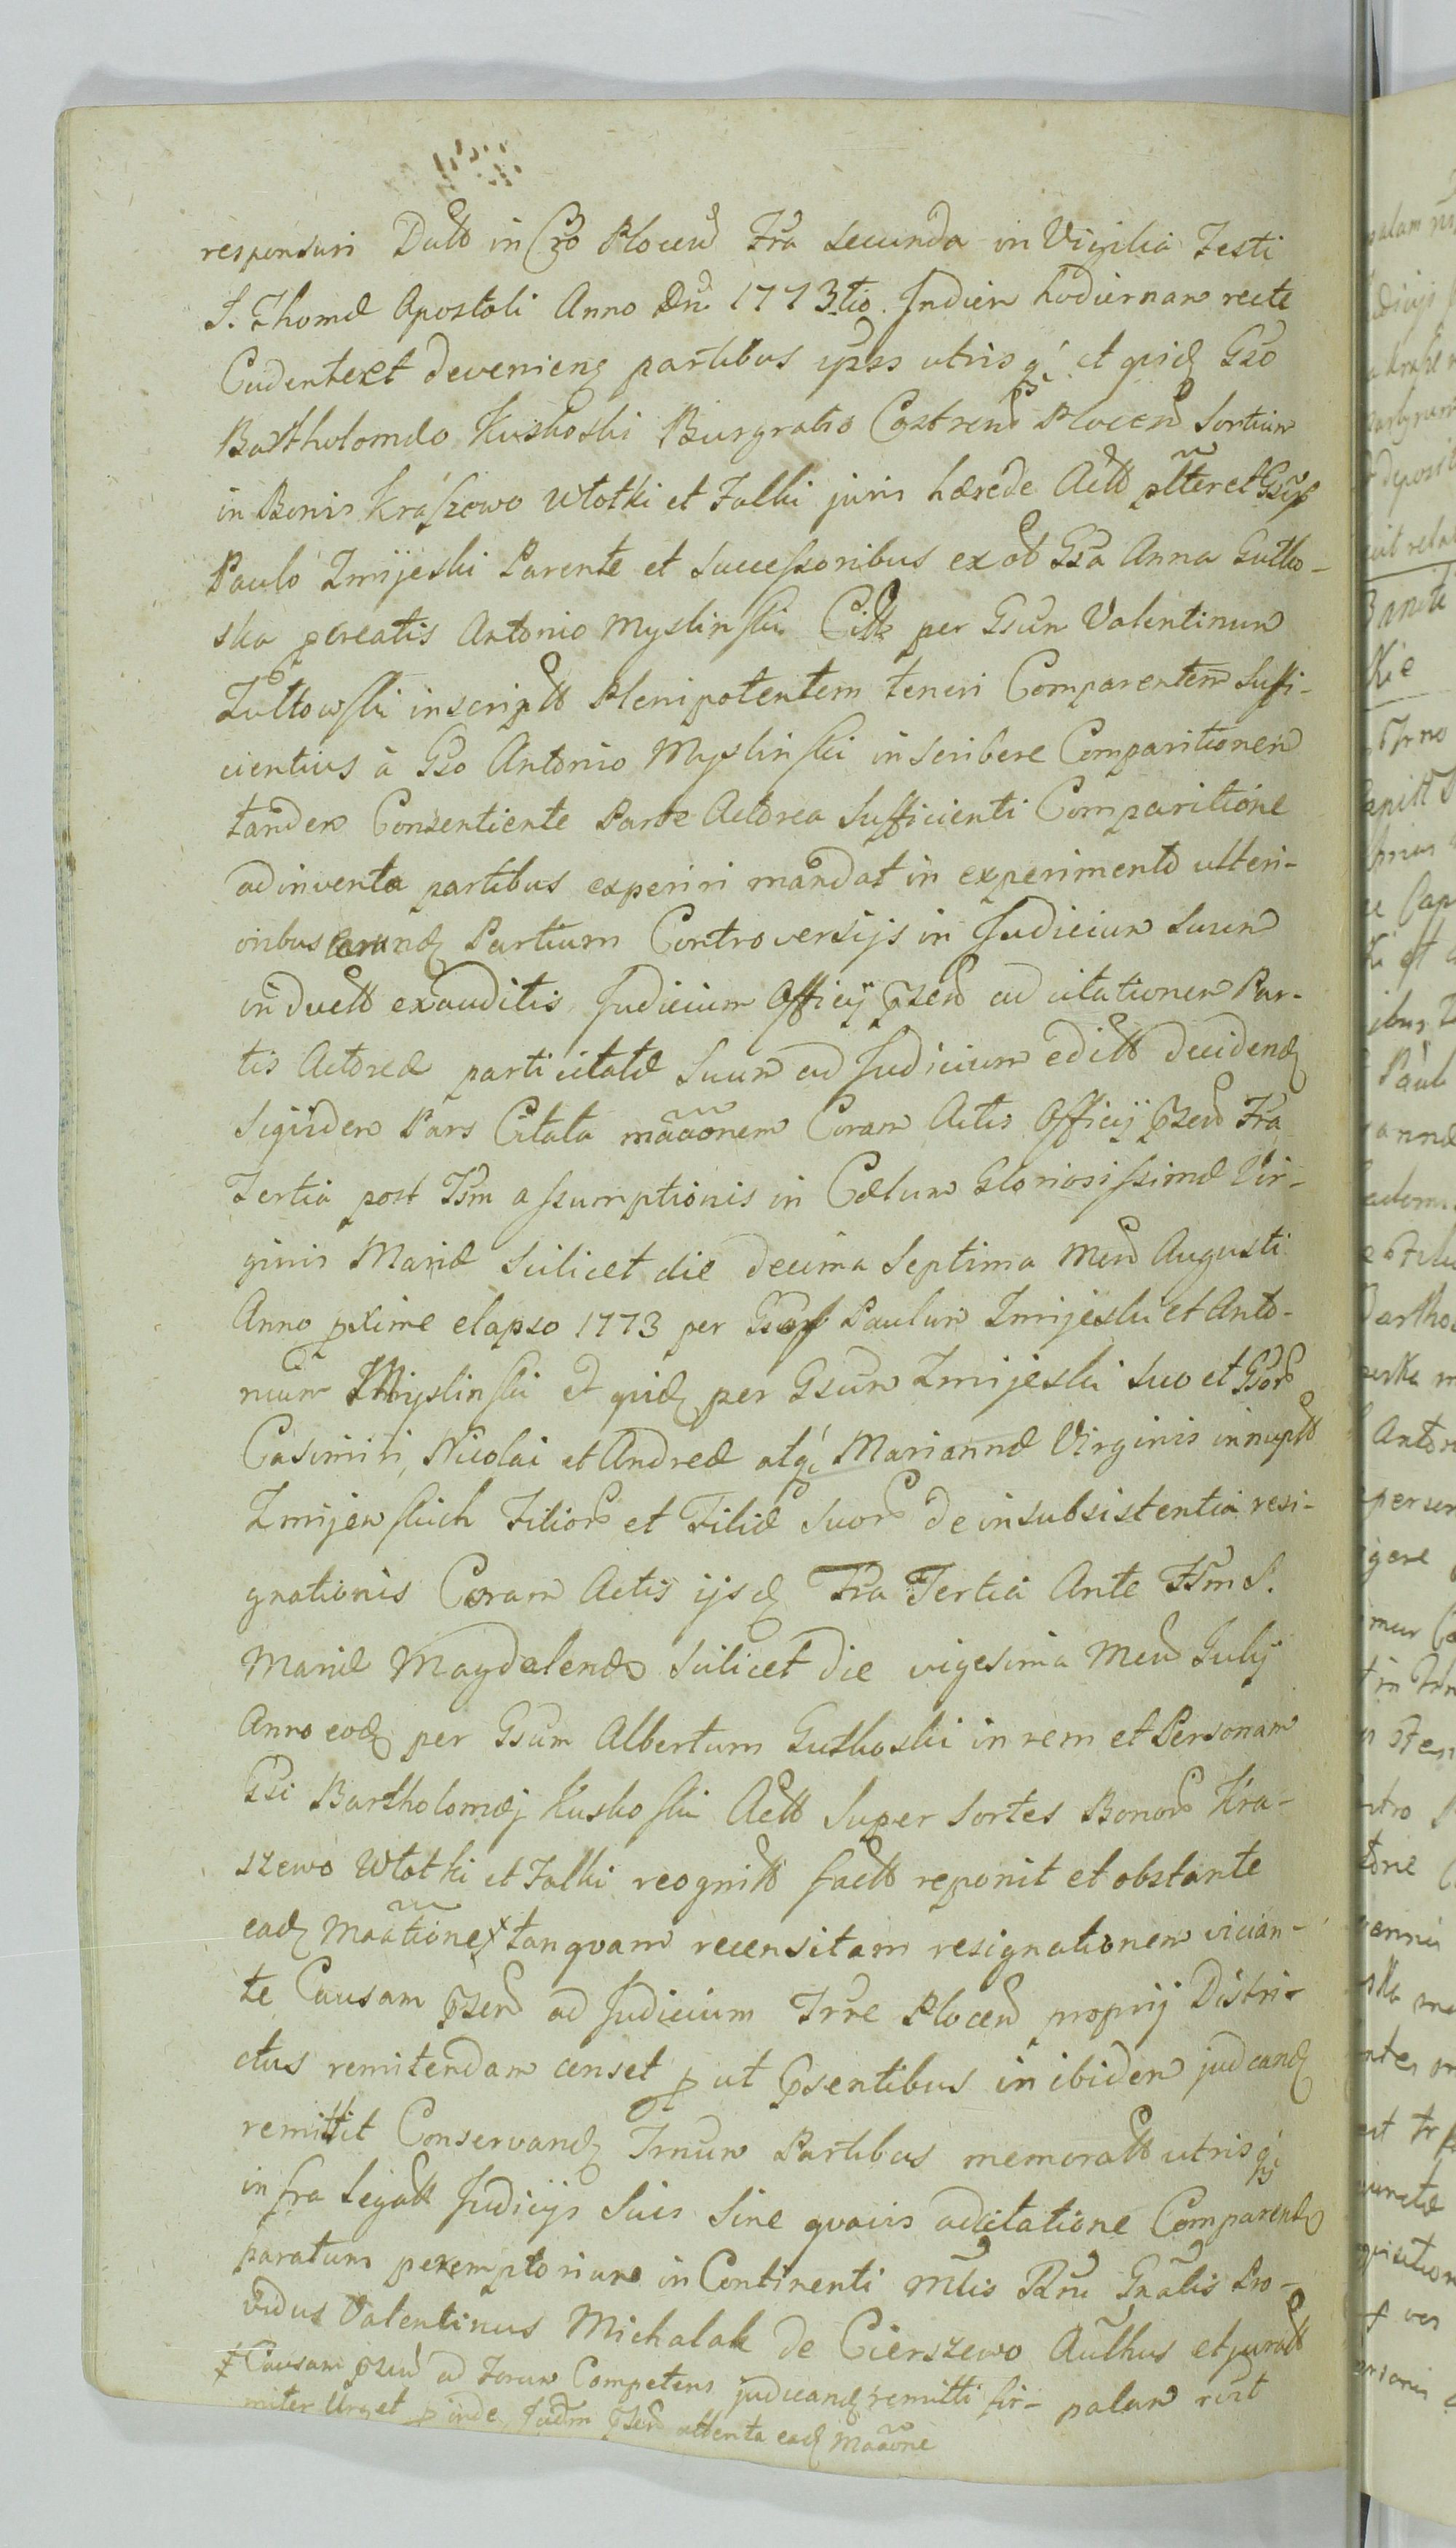 responsuri Datt in Cro Plocen Fra secunda in Vigilia Festi
S. Thomæ Apostoli Anno Dn̄i 1773tio. Indiem hodiernam recte
Cadentext devenienq partibus ypss utrisq́ et quidq Gso
Bartholomæo Kuskoski Burgrabio Castren Plocen Sortium
in Bonis Kraszewo Wtotki et Falki juris hærede Actt
Paulo Zmijeski Parente et Successoribus ex ot Gsa Anna Gutko-
ska pcreatis Antonio Myslinski Citt per Gsum Valentinum
Zultowski inscriptt Plenipotentem teneri Comparentem Suffi-
cientius à Gso Antonio Myslinski inscribere Comparitionem
tandem Consentiente Parte Actorea Sufficienti Comparitione
adinventa partibus experiri mandat in experimento ulteri-
oribus earundq Partium Controversijs in Judicium Suum
inductt exauditis Judicium Officij pzen ad citationem Par-
tis Actoreæ parti citatæ Suum ad Judicium editt decidendq
Siquidem Pars Citata mãaõnem Coram Actis Officij pzen Fra
Tertia post Fsm assumptionis in Cælum Gloriosissimæ Vir-
ginis Mariæ Scilicet die decima Septima Men Augusti
Anno pxime elapso 1773 per Paulum Zmijeski et Anto-
nium Myslinski et quidq per Gsum Zmijeski Suo et Gsor
Casimiri, Nicolai et Andreæ atq́ Mariannæ Virginis innuptt
Zmijewskich Filior et Filiæ Suor de insubsistentia resi-
gnationis Coram Actis ijsdq Fra Tertia Ante Fsm S.
Mariæ Magdalenæ Scilicet die vigesima Men Julij
Anno eodq per Gsum Albertum Gutkoski in rem et Personam
Gsi Bartholomæj Kuskoski Actt Super Sortes Bonor Kra-
szewo Wtotki et Falki recognitt factt reponit et obstante
eadq Maãtione ⧧ tanquam recensitam resignationem vician-
te Causam pzen ad Judicium Trre Plocen proprij Distri-
ctus remitendam censet put psentibus inibidem judcandq
remittit Conservandq Trnum Partibus memoratt utrisq́
infra legatt Judicijs Suis Sine quavis adcitatione Comparendq
paratum peremptorium in Continenti Mtis Rni Gnalis Pro-
vidus Valentinus Michalak de Cierszewo Authus et juratt
palam rcit
⧧ Causam pzen ad Forum Competens judicandq remitti fir-
miter Urget pinde Judm pzen attenta eadq Maãone